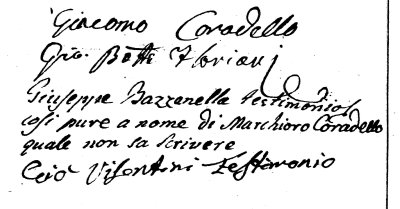 Giacomo Coradello
Gio. Batta Floriani
Giuseppe Bazzanella testimonio
cosi pure a nome di Marchioro Coradello
quale non sa scrivere
Gio Visentini Testimonio